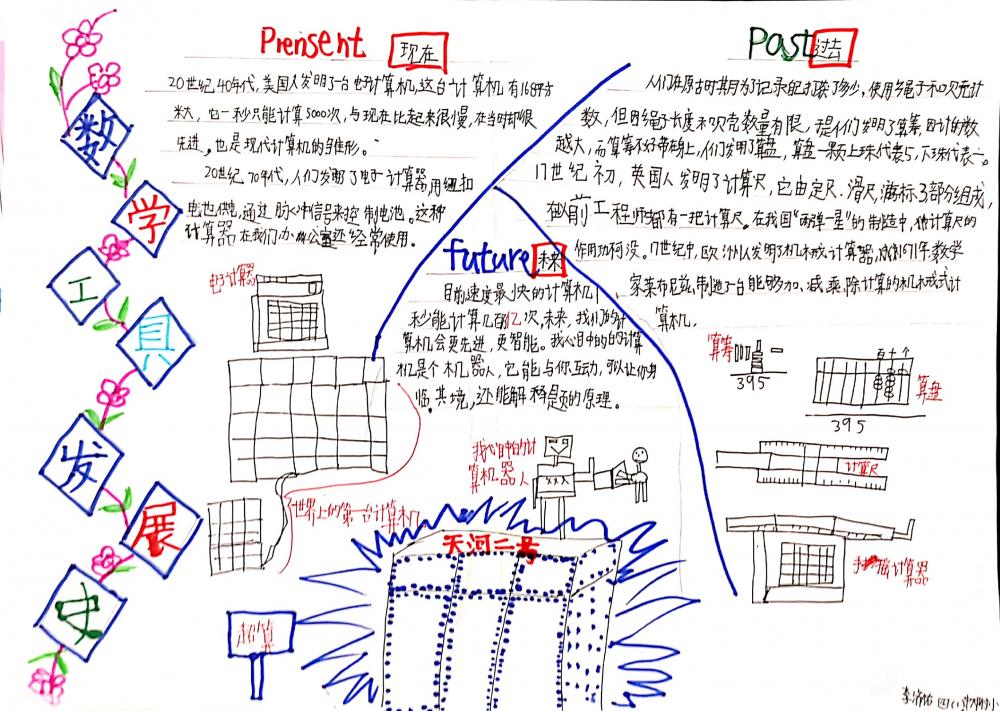 数学工具发展史
Prensent 现在
20世纪40年代,美国人发明了一台电子计算机,这台计算机有168平方
米大,它一秒只能计算5000次,与现在比起来很慢,在当时却很
先进,也是现代计算机的雏形。
20世纪70年代,人们发明了电子计算器用纽扣
电池供电,通过脉冲信号来控制电池。这种
计算器在我们办公室还经常使用。
电子计算器
世界上的第一台计算机
Past 过去
人们在原古时其月为了记录
多少,使用绳子和贝壳计
数,但因绳子长度和贝壳数量有限,
人们发明了算筹,因计的数
越大,而算筹不好带身上,人们发明了算盘,算盘一颗上珠代表5,下珠代表一。
17世纪初,英国人发明了计算尺,它由定尺.滑尺,游标3部分组成,
在以前工程师都有一把计算尺。在我国“两弹一星”的制造中,
计算尺的
作用功不可没。17世纪中,欧洲人发明了机械计算器,
年数学
家莱布尼兹,制造了一台能够加、减、乘、除计算的机械式计
算机.
算筹
395
百十个
算盘
395
计算尺
手摇计算器
future 未来
目前速度最快的计算机1
秒能计算几百亿次,未来,我们的计
算机会更先进,更智能。我心目中的的计算
机是个机器人,它能与你互动,可以让你身
临其境,还能解释题的原理。
我心目中的计
算机器人
天河二号
超算